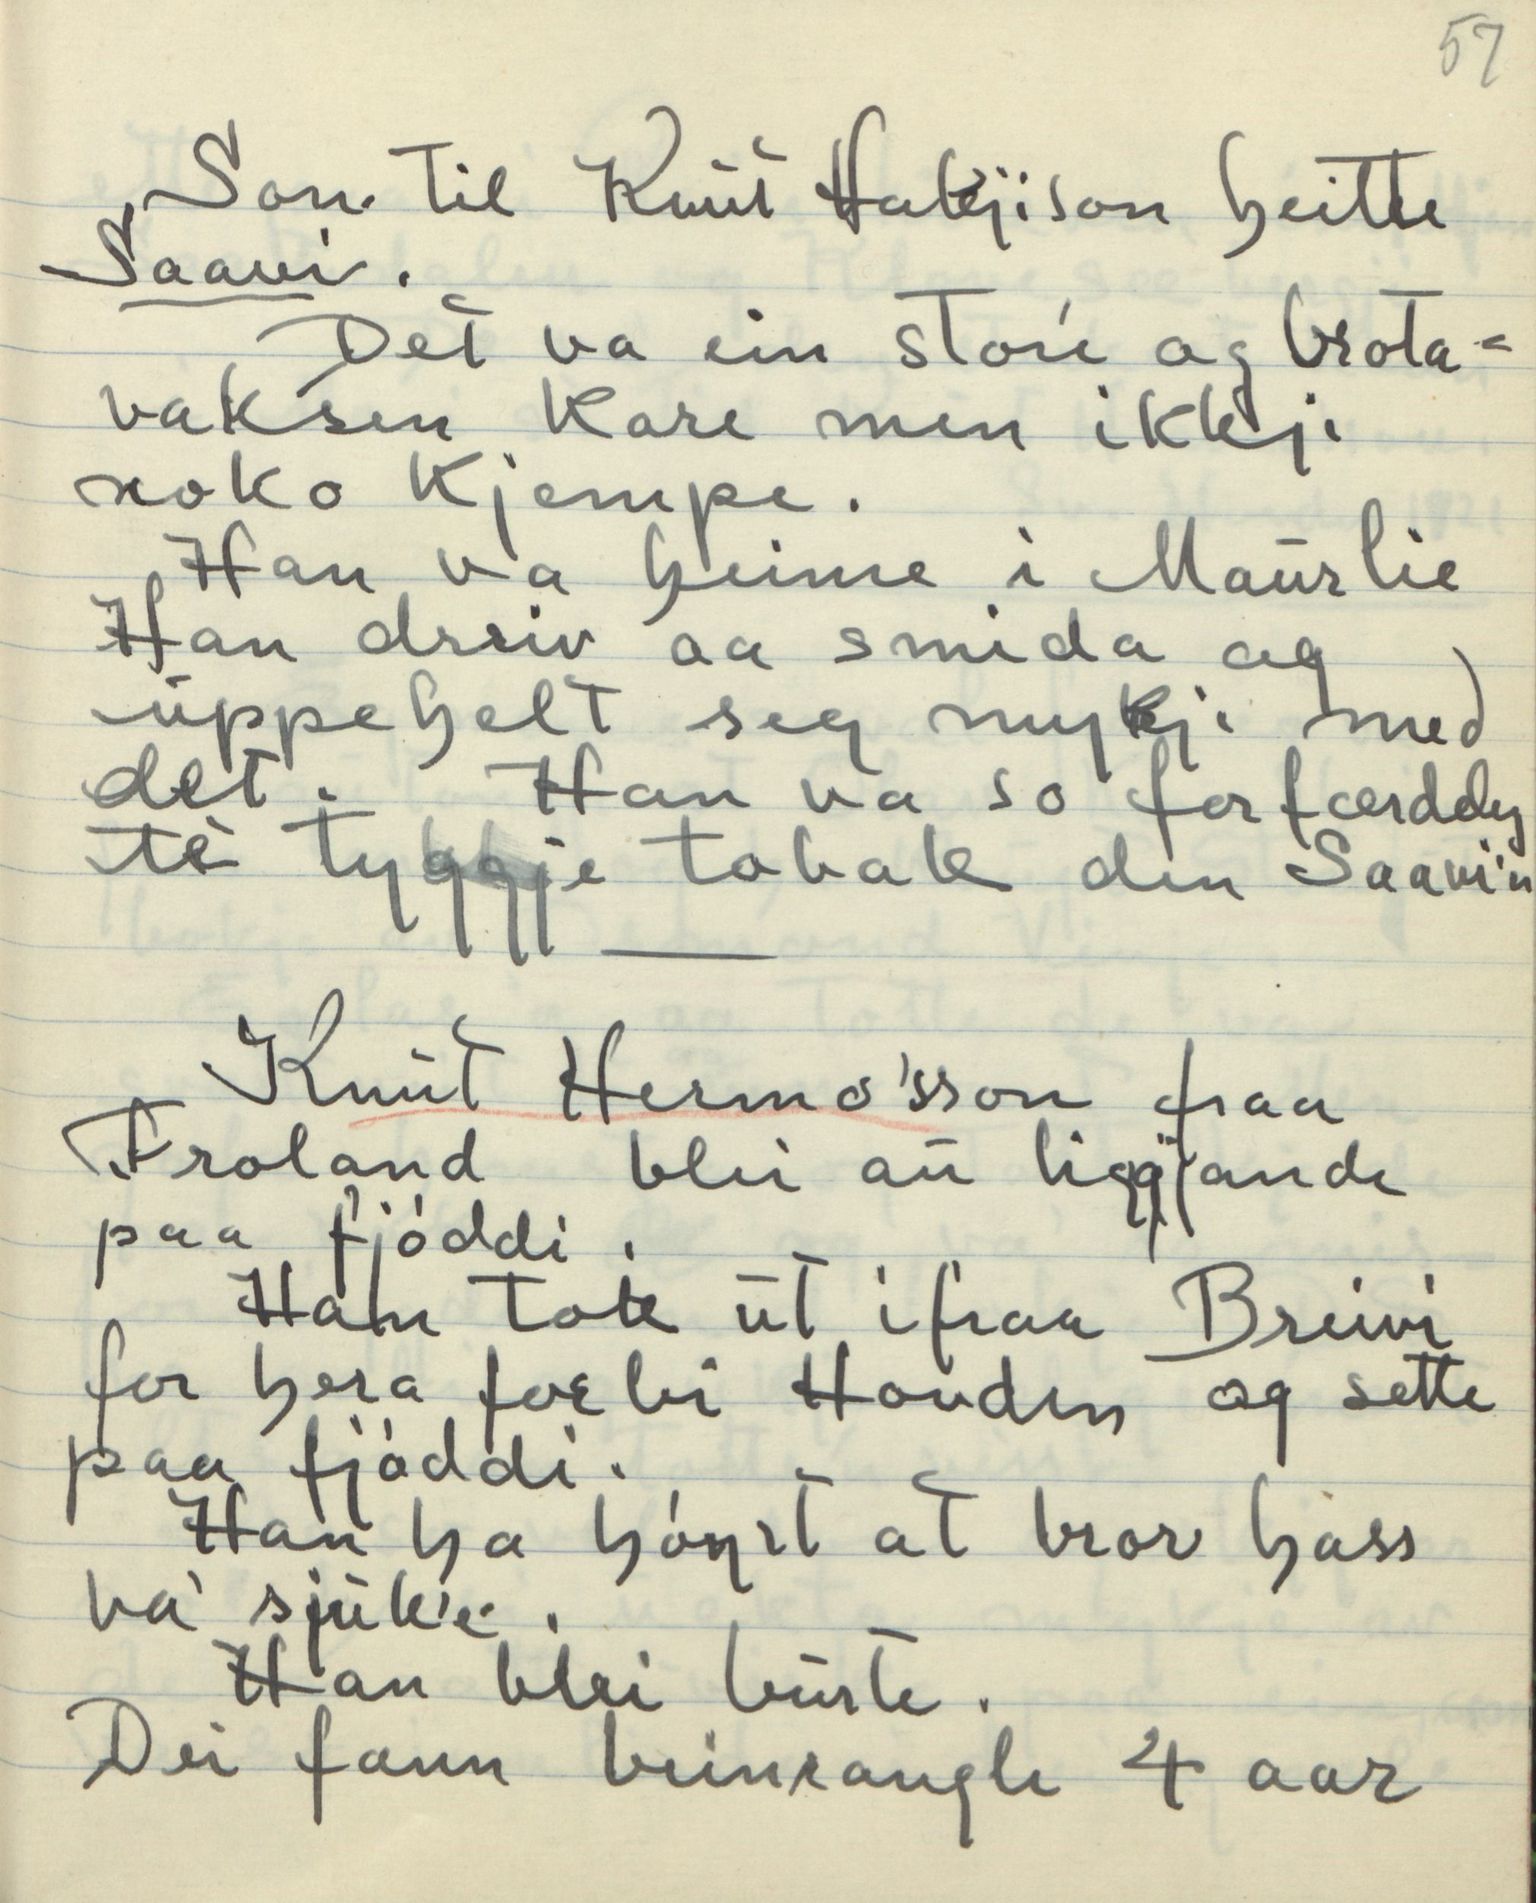 57
Son til Knut Hakjison heitte
Saavi.
Det va ein store og brota-
vaksen kare men ikkji
noko kjempe.
Han va heime i Maurlie
Han dreiv aa smida og
uppehelt seg mykji med
det. Han va so forfærdeleg
te tyggje tobak den Saavi'n
Knut Hermo'sson fraa
Froland blei au liggjande
paa fjóddi.
Han tok ut ifraa Breivi
for hera forbi Hovden og sette
paa fjóddi.
Han ha hóyrt at bror hass
va sjuk'e.
Han blei burte.
Dei fann beinrangle 4 aar